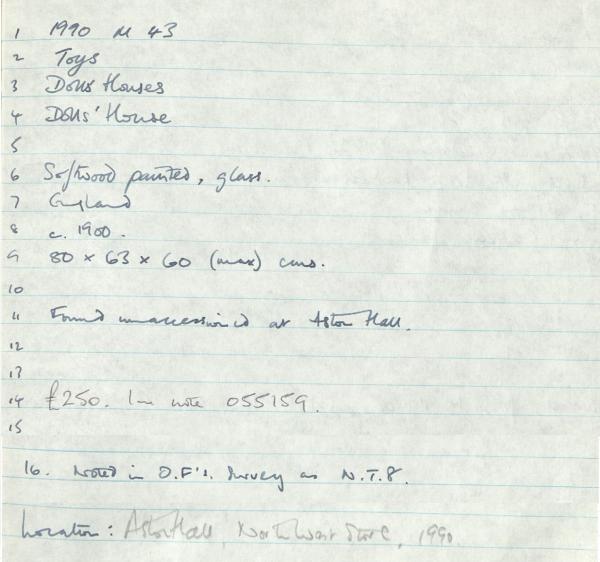 1 1990 M 43
2 Toys
3 Dolls' Houses
4 Dolls' House
5
6 Softwood painted, glass.
7 England
8 c. 1900.
9 80 × 63 × 60 (max) cms.
10
11 Found unaccessioned at Aston Hall.
12
13
14 £250. Inv note 055159.
15
16. Noted in O.F's. Survey as N.T.8.
Location: Aston Hall, North West Store, 1990.